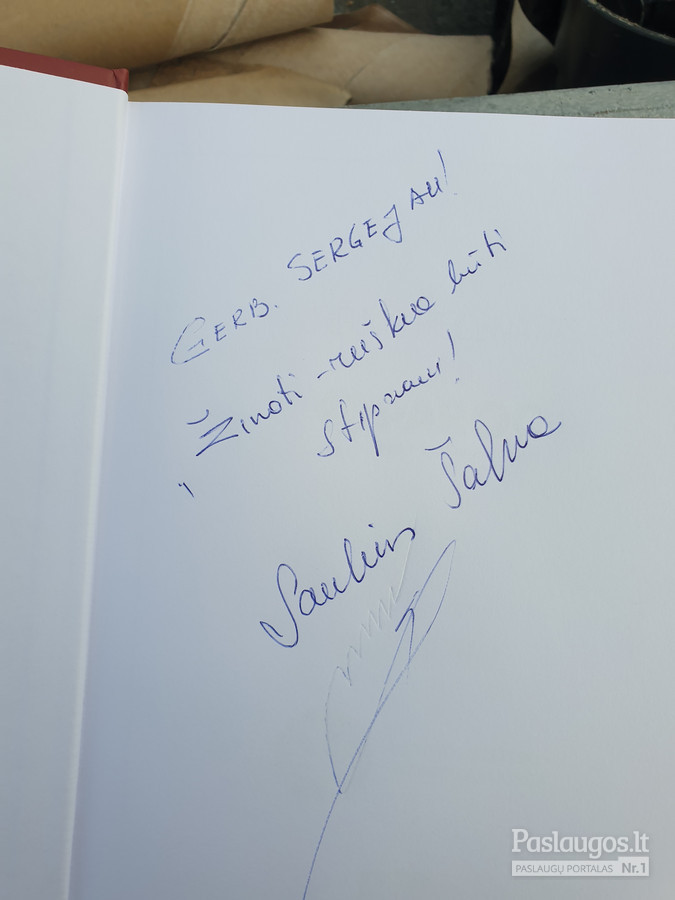 GERB. SERGEJAU!
„Žinoti - reiškia būti
stipriam!
Saulius Šalna
Paslaugos.lt
PASLAUGŲ PORTALAS Nr.1